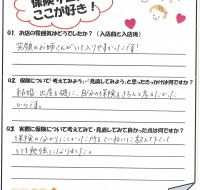 ここが好き！
01. お店の雰囲気はどうでしたか？（入店前と入店後）
笑顔のお姉さんがいて入りやすかったです！
02. 保険について「考えてみよう」・「見直してみよう」と思ったきっかけは何ですか？
結婚・出産を機に、自分の保険をきちんと考えたかった
からです。
03. 実際に保険について考えてみて・見直してみて良かった点は何ですか？
保険のなかみにこだわった所をていねいに教えて下さって
とても勉強になりました。